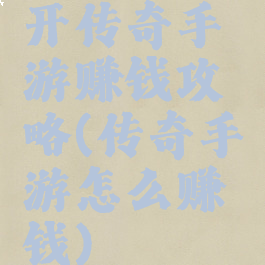 开传奇手
游赚钱攻
略(传奇手
游怎么赚
钱)